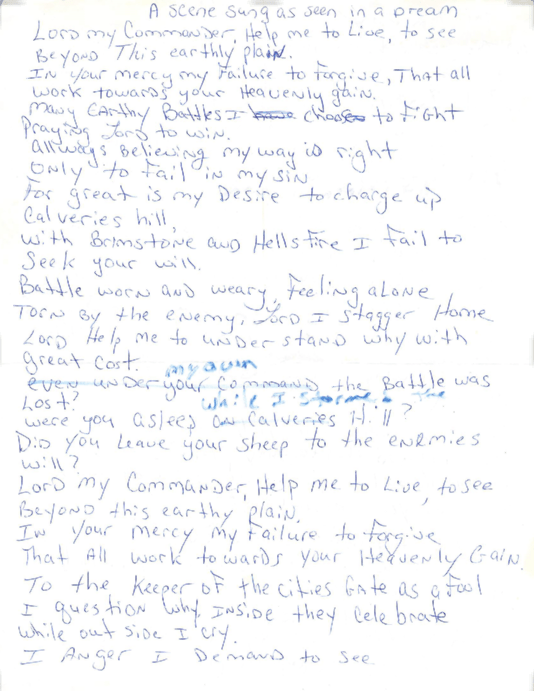 A scene sung as seen in a Dream
Lord my Commander, Help me to Live, to see
Beyond This earthly plain.
In your mercy my Failure to Forgive, That all
work towards your Heavenly gain.
Many Earthy Battles I choose to Fight
Praying Lord to win.
Allways Believing my way is right
Only to Fail in my sin
For great is my Desire to charge up
Calveries hill,
with Brimstone and Hells Fire I Fail to
Seek your will.
Battle worn and weary, Feeling alone
Torn By the enemy, Lord I stagger Home
Lord Help me to under stand why with
great Cost.
my own
even under your Command the Battle was
Lost?
while I Storme the
were you asleep on Calveries Hill?
Did you Leave your sheep to the enemies
will?
Lord my Commander, Help me to Live, to see
Beyond this earthy plain.
In your Mercy my Failure to Forgive
That All work towards your Heavenly Gain.
To the Keeper of the cities Gate as a Fool
I question why, Inside they celebrate
while out side I cry.
I Anger I Demand to see